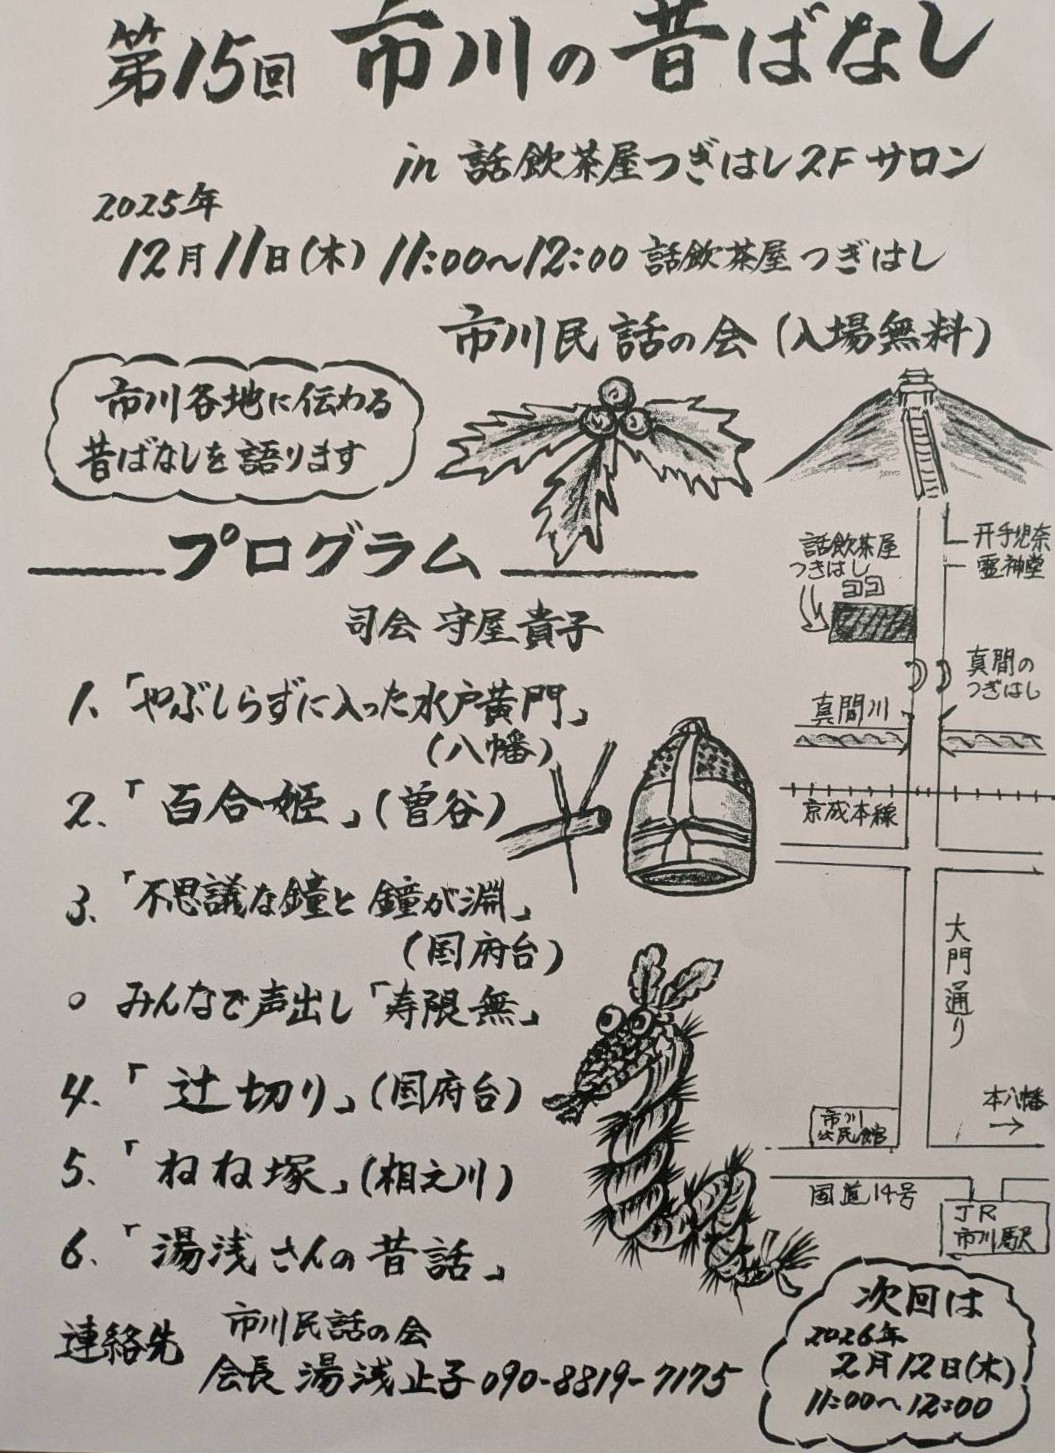 第15回 市川の昔ばなし
in 話飲茶屋つぎはし2Fサロン
2025年
12月11日(木) 11:00〜12:00 話飲茶屋つぎはし
市川民話の会(入場無料)
市川各地に伝わる
昔ばなしを語ります
プログラム
司会 守屋貴子
1、「やぶしらずに入った水戸黄門」
(八幡)
2、「百合姫」(曽谷)
3、「不思議な鐘と鐘が淵」
(国府台)
○ みんなで声出し「寿限無」
4、「辻切り」(国府台)
5、「ねね塚」(相之川)
6、「湯浅さんの昔話」
連絡先 市川民話の会
会長 湯浅止子 090-8819-7175
話飲茶屋
つぎはし
ココ
手児奈
霊神堂
真間の
つぎはし
真間川
京成本線
大門通り
本八幡
→
市川
公民館
国道14号
JR
市川駅
次回は
2026年
2月12日(木)
11:00〜12:00